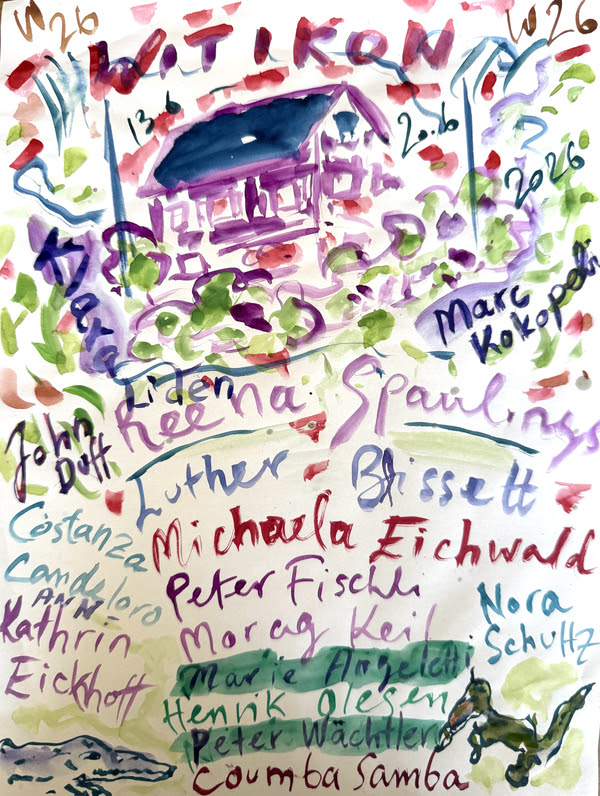 W26
W26
WITIKON
13.6
20.6
2026
Klara
Liden
Marc
Kokopeli
Reena Spaulings
John
Duff
Luther Blissett
Costanza
Candeloro
Michaela Eichwald
Peter Fischli
ANN-
Kathrin
Eickhoff
Morag Keil
Nora
Schultz
Marie Angeletti
Henrik Olesen
Peter Wächtler
Coumba Samba